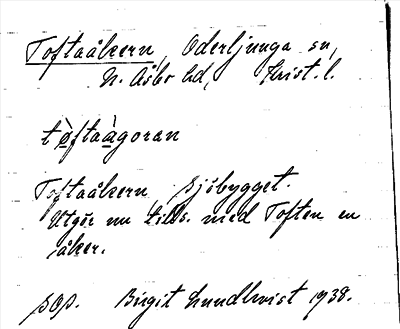 Toftaåkern, Oderljunga sn,
N. Åsbo hd, Krist. l.
tòftaàgoran
Toftaåkern sjöbygget.
Utgör nu tills. med Toften en
åker.
pop. Birgit Lundkvist 1938.